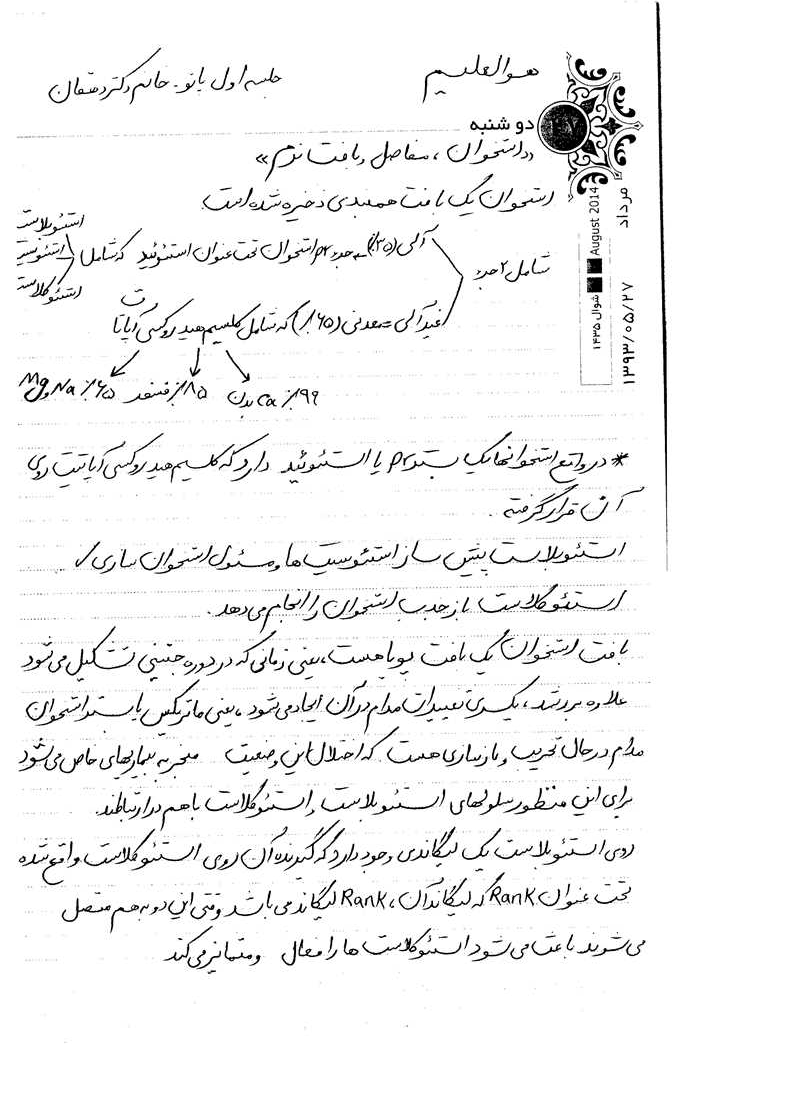 هوالعلیم
جلسه اول پاتو - خانم دکتر دهقان
دوشنبه
«استخوان، مفاصل و بافت نرم»
مرداد
August 2014
شوال ۱۴۳۵
۱۳۹۳/۰۵/۲۷
استخوان یک بافت همبندی ذخیره شده است.
شامل ۲ جزء
آلی (۳۵٪) ← جزء pr استخوان تحت عنوان استئوئید که شامل
استئوبلاست
استئوسیت
استئوکلاست
غیرآلی = معدنی (۶۵٪) که شامل کلسیم هیدروکسی آپاتایت
۹۹٪ Ca بدن
۸۵٪ فسفر
۶۵٪ Na و Mg
* در واقع استخوانها یک بستر pr یا استئوئید دارد که کلسیم هیدروکسی آپاتیت روی
آن قرار گرفته.
استئوبلاست پیش ساز استئوسیت ها و مسئول استخوان سازی ✓
استئوکلاست بازجذب استخوان را انجام می دهد.
بافت استخوان یک بافت پویا هست، یعنی زمانی که در دوره جنینی تشکیل می شود
علاوه بر رشد، یکسری تغییرات مدام در آن ایجاد می شود، یعنی ماتریکس یا بستر استخوان
مدام در حال تخریب و بازسازی هست که اختلال این وضعیت منجر به بیماریهای خاص می شود
برای این منظور سلولهای استئوبلاست و استئوکلاست با هم در ارتباطند.
روی استئوبلاست یک لیگاندی وجود دارد که گیرنده آن روی استئوکلاست واقع شده
تحت عنوان Rank که لیگاند آن، Rank لیگاند می باشد وقتی این دو به هم متصل
می شوند باعث می شود استئوکلاست ها را فعال و متمایز می کند